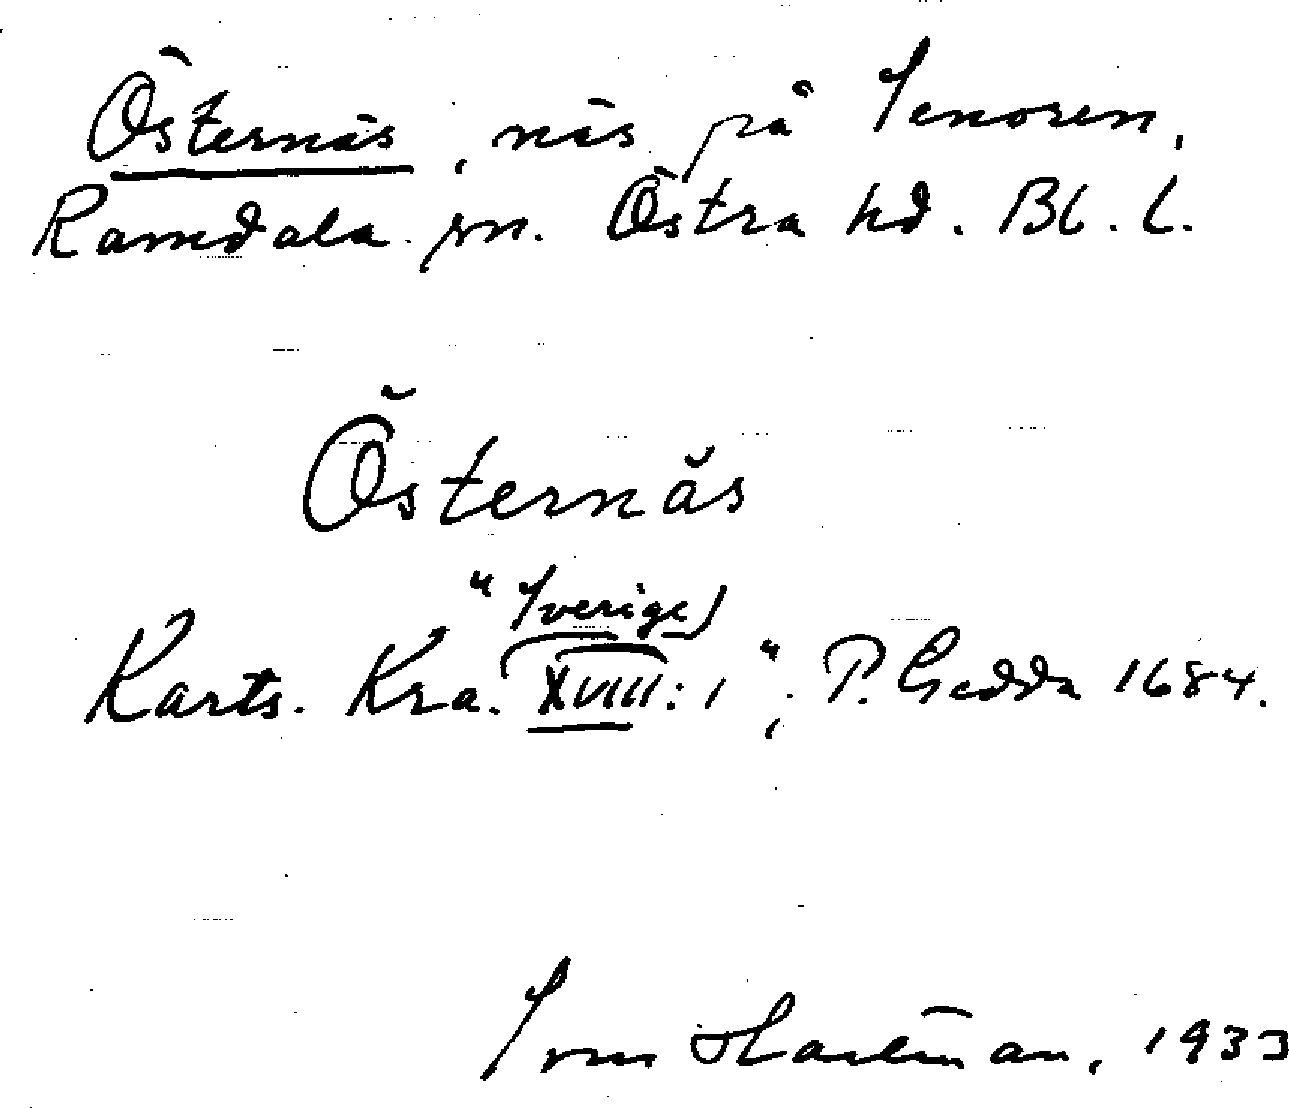 Östernäs, näs på Senoren,
Ramdala sn. Östra hd. Bl. l.
Östernäs
"Sverige)
Karts. Kra. XVIII:1"; P. Gedda 1684.
Sven Hartman, 1933